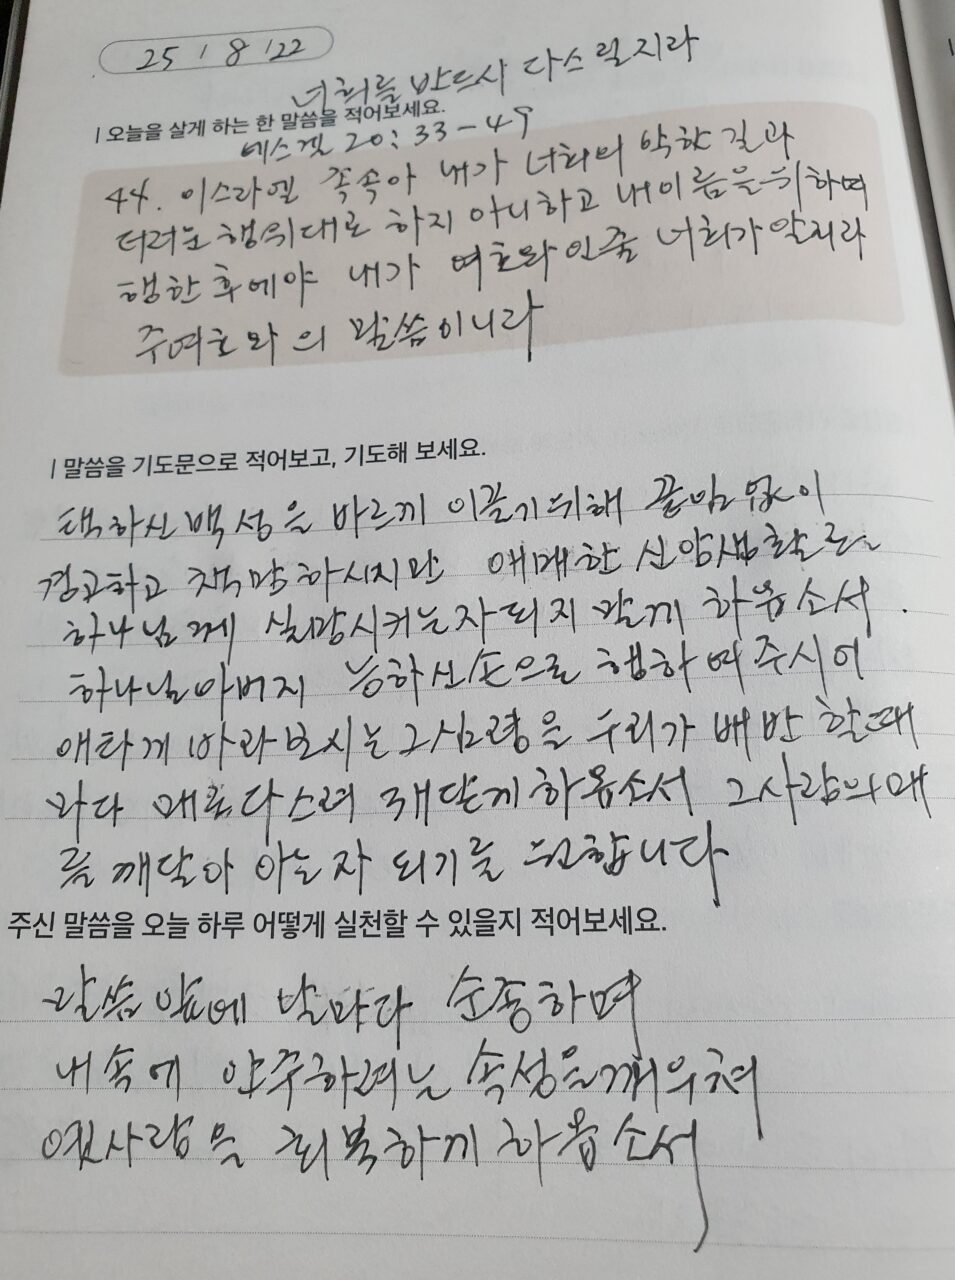 25 / 8 / 22
너희를 반드시 다스릴지라
| 오늘을 살게 하는 한 말씀을 적어보세요.
에스겔 20:33-49
44. 이스라엘 족속아 내가 너희의 악한 길과
더러운 행위대로 하지 아니하고 내이름을 위하여
행한 후에야 내가 여호와인줄 너희가 알지라
주여호와의 말씀이니라
| 말씀을 기도문으로 적어보고, 기도해 보세요.
택하신백성을 바르게 이끌기위해 끝임없이
경고하고 책망하시지만 애매한 신앙생활로
하나님께 실망시키는자되지 말게 하옵소서.
하나님아버지 능하신손으로 행하여주시어
애타게 바라보시는 그심령을 우리가 배반 할때
마다 매로다스려 깨닫게하옵소서 그사랑의매
를 깨달아 아는자 되기를 원합니다
주신 말씀을 오늘 하루 어떻게 실천할 수 있을지 적어보세요.
말씀앞에 날마다 순종하며
내속에 안주하려는 속성을깨우쳐
옛사람을 회복하게 하옵소서